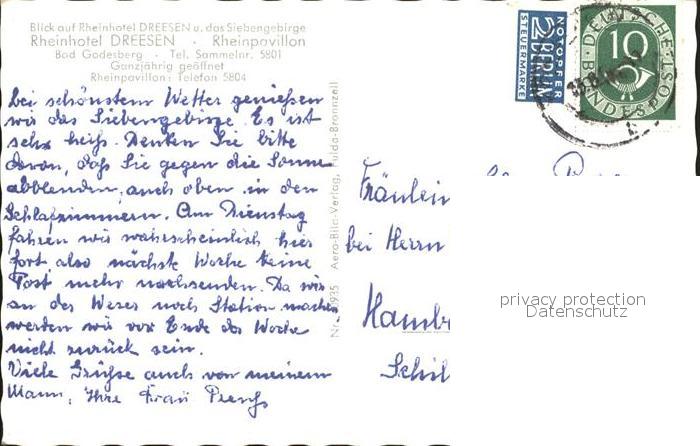 Blick auf Rheinhotel DREESEN u. das Siebengebirge
Rheinhotel DREESEN · Rheinpavillon
Bad Godesberg · Tel. Sammelnr. 5801
Ganzjährig geöffnet
Rheinpavillon: Telefon 5804
bei schönstem Wetter genießen
wir das Siebengebirge. Es ist
sehr heiß. Denken Sie bitte
daran, daß Sie gegen die Sonne
abblenden, auch oben in den
Schlafzimmern. Am Dienstag
fahren wir wahrscheinlich hier
fort, also nächste Woche keine
Post mehr nachsenden. Da wir
an der Weser noch Station machen
werden wir vor Ende der Woche
nicht zurück sein.
Viele Grüße auch von meinem
Mann, Ihre Frau
Aero-Bild-Verlag, Fulda-Bronnzell
NOTOPFER
2 BERLIN
STEUERMARKE
DEUTSCHE
BUNDESPOST
10
Fräulein
bei Herrn
Hamb
Schil
privacy protection
Datenschutz